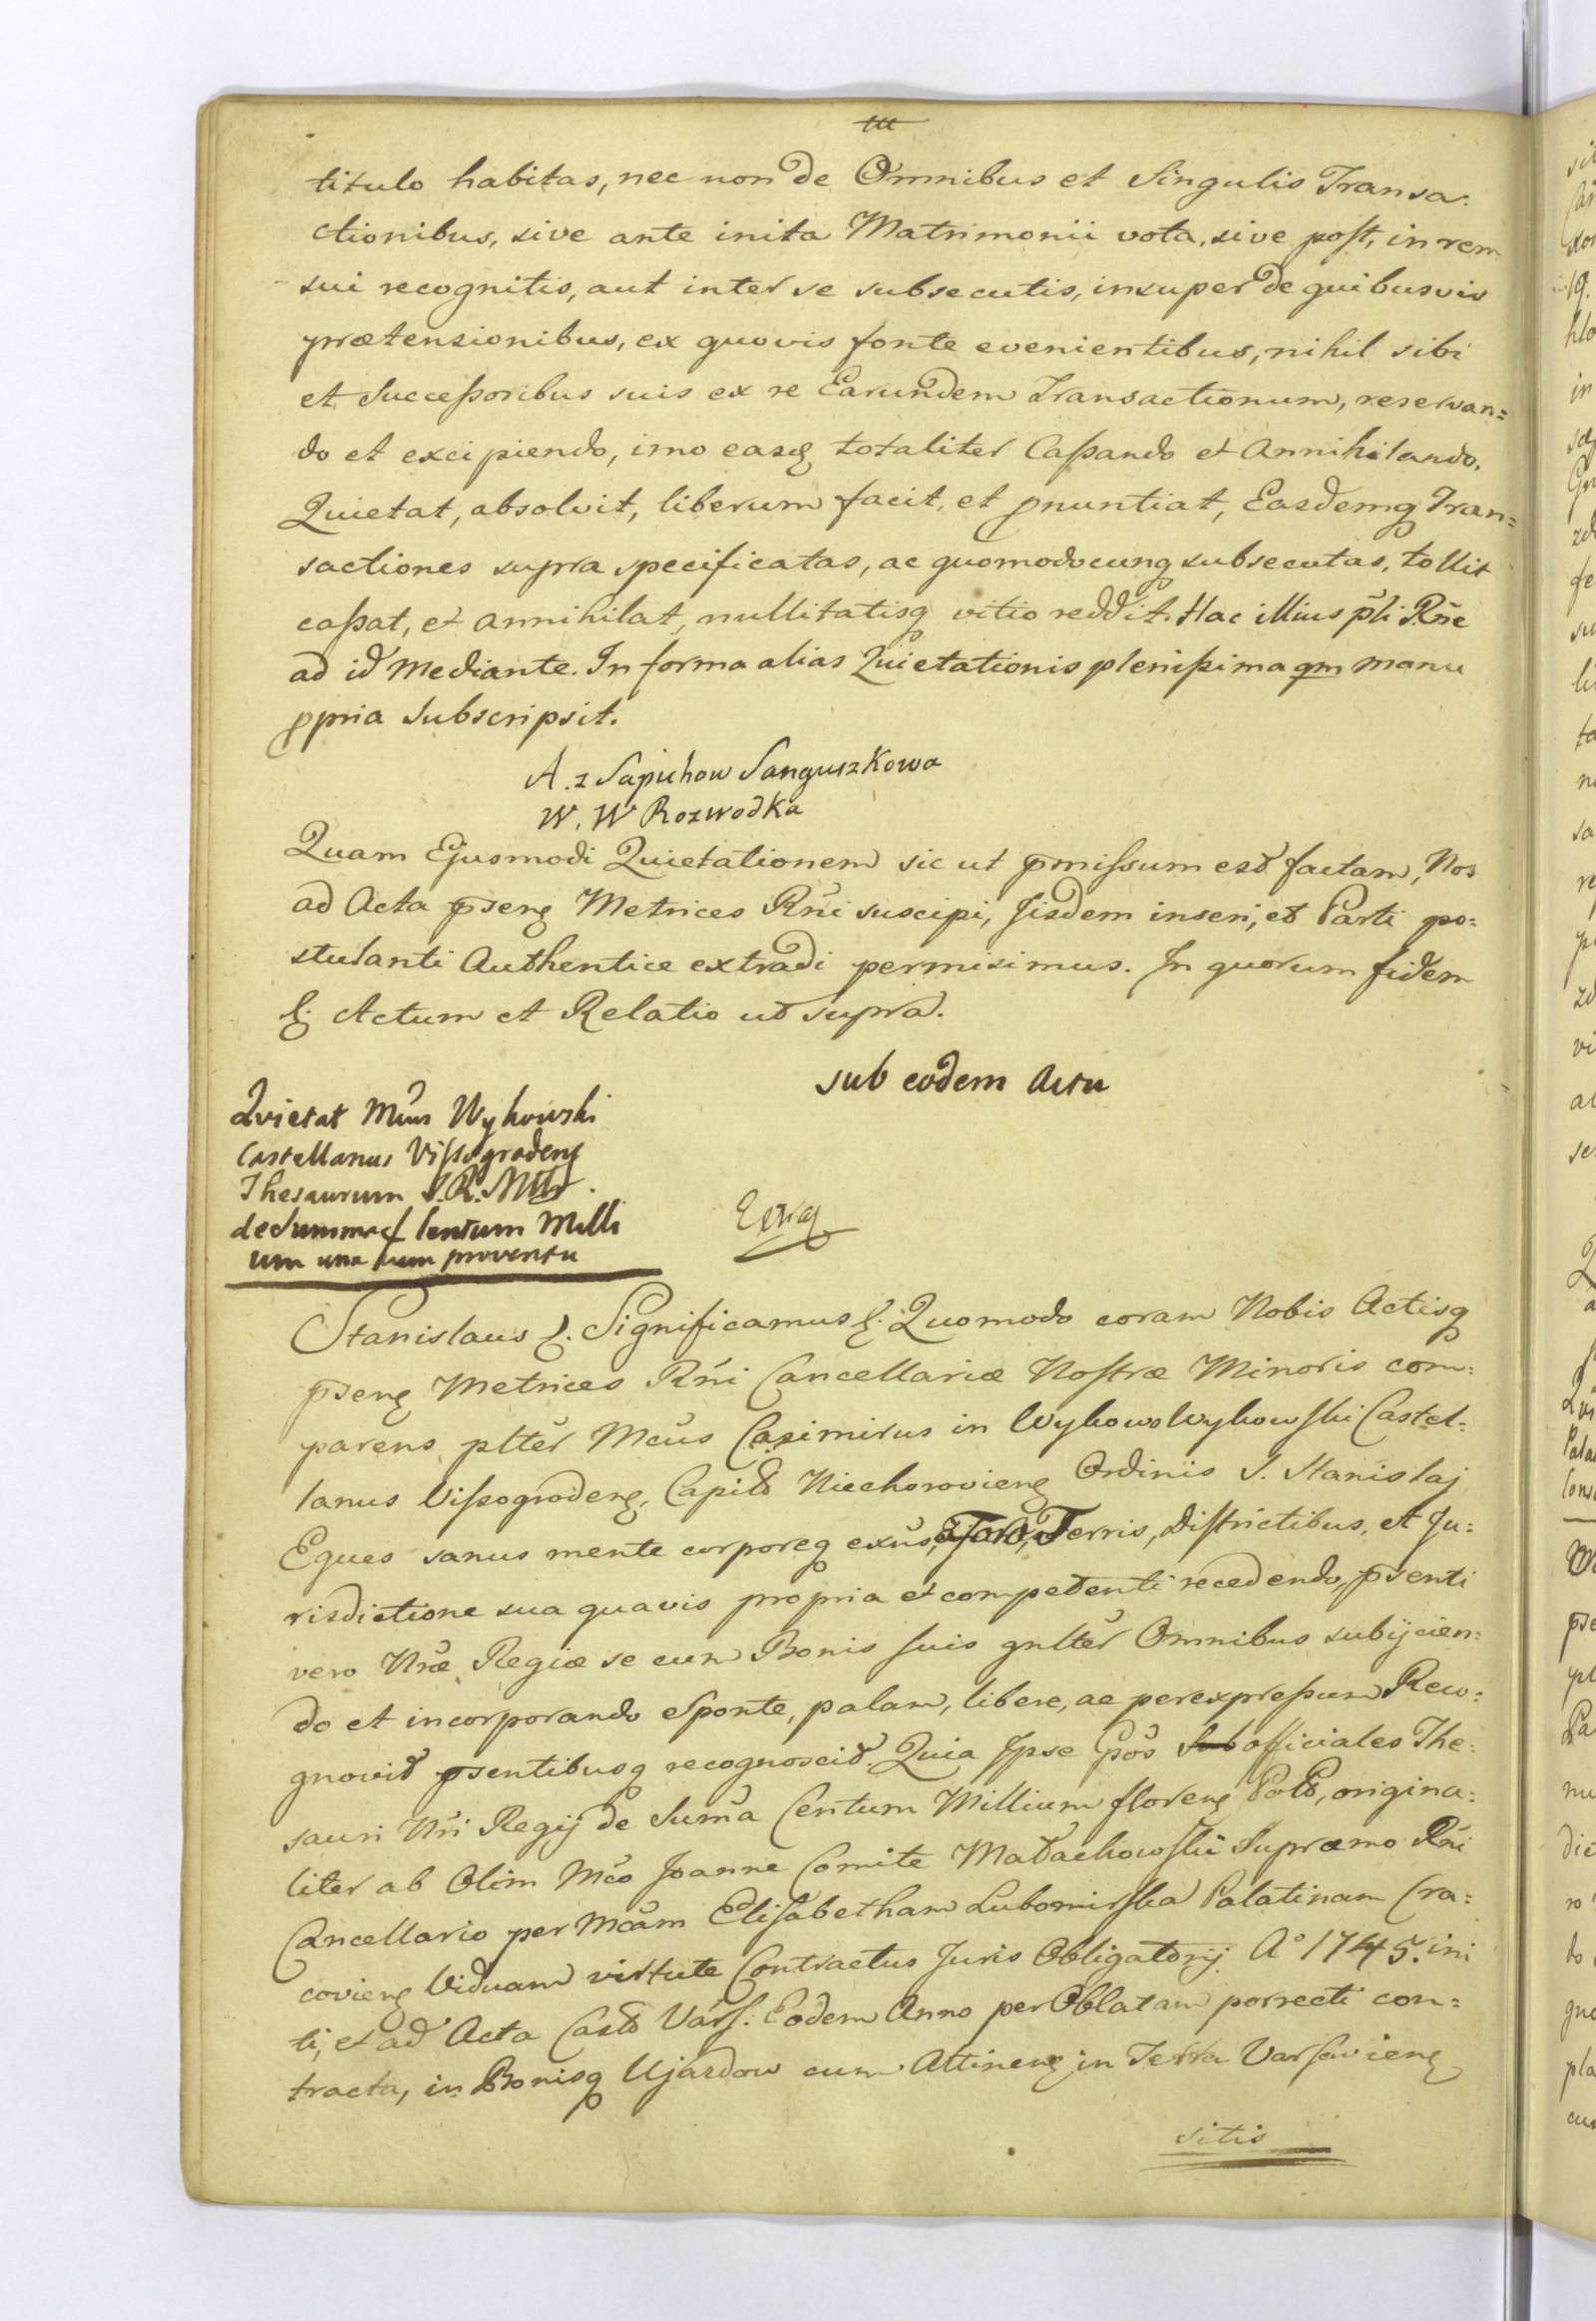 titulo habitas, nec non de Omnibus et Singulis Transa:
ctionibus, sive ante inita Matrimonii vota, sive post, in rem
sui recognitis, aut inter se subsecutis, insuper de quibusvis
prætensionibus, ex quovis fonte evenientibus, nihil sibi
et Successoribus suis ex re Earundem Transactionum, reservan=
do et excipiendo, imo easq totaliter Cassando et Annihilando.
Quietat, absolvit, liberum facit, et pnuntiat, Easdemq Tran=
sactiones supra specificatas, ac quomodocunq subsecutas, tollit
cassat, et annihilat, nullitatisq vitio reddit. Hac illius pli Rñe
ad id Mediante. In forma alias Quietationis plenissima qm manu
ppria Subscripsit.
A. z Sapiehow Sanguszkowa
W. W Rozwodka
Quam Ejusmodi Quietationem sic ut pmissum est factam, Nos
ad Acta pseng Metrices Rñi suscipi, Jisdem inseri, et Parti po=
stulanti Authentice extradi permisimus. In quorum fidem
&. Actum et Relatio ut supra.
sub eodem Actu
Quietat Mcus Wykowski
Castellanus Vissogradens
Thesaurum S. R. Mtis.
de Summa Centum Milli
um una cum proventu
Extra
Stanislaus &. Significamus &. Quomodo coram Nobis Actisq
pseng Metrices Rñi Cancellariæ Nostræ Minoris com:
parens pltér Mcus Casimirus in Wykowo Wykowski Castel:
lanus Vissogrodeng, Capit Niechorovieng Ordinis S. Stanislaj
Eques sanus mente corporeq exũs, Terris, Districtibus, et Ju:
risdictione sua quavis propria et competenti recedendo, psenti
vero Nræ Regiæ se cum Bonis suis gnltér Omnibus subijcien:
do et incorporando Sponte, palam, libere, ac per expressum Reco:
gnovit psentibusq recognoscit. Quia Ipse Gõs officiales The:
sauri Nri Regij de Suma Centum Millium floreng Polo, origina:
liter ab Olim Mco Joanne Comite Małachowski Supræmo Rñi
Cancellario per Mcam Elisabetham Lubomirska Palatinam Cra:
covieng Viduam virtute Contractus Juris Obligatorij Aº 1745. ini
ti, et ad Acta Cast Vars. Eodem Anno per Oblatam porrecti con:
tracta, in Bonisq Ujazdow cum Attineng in Terra Varsavieng
sitis